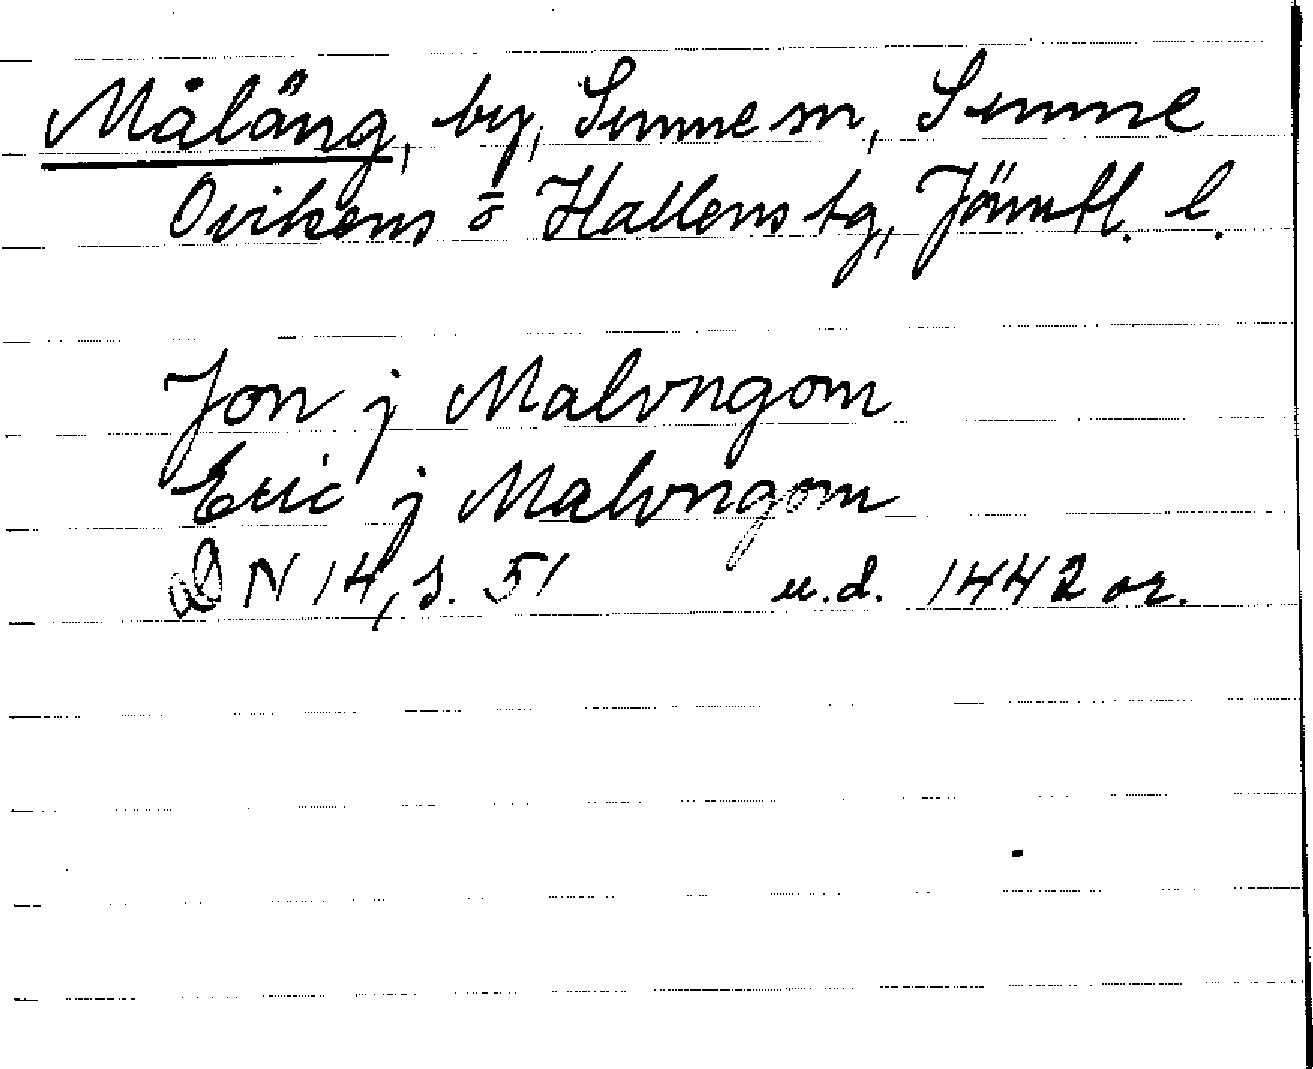 Måläng, by, Sunne sn, Sunne
Ovikens o Hallens tg, Jämtl. l.
Jon j Malvngom
Eric j Malvngom
DN 14, s. 51 u.d. 1442 or.